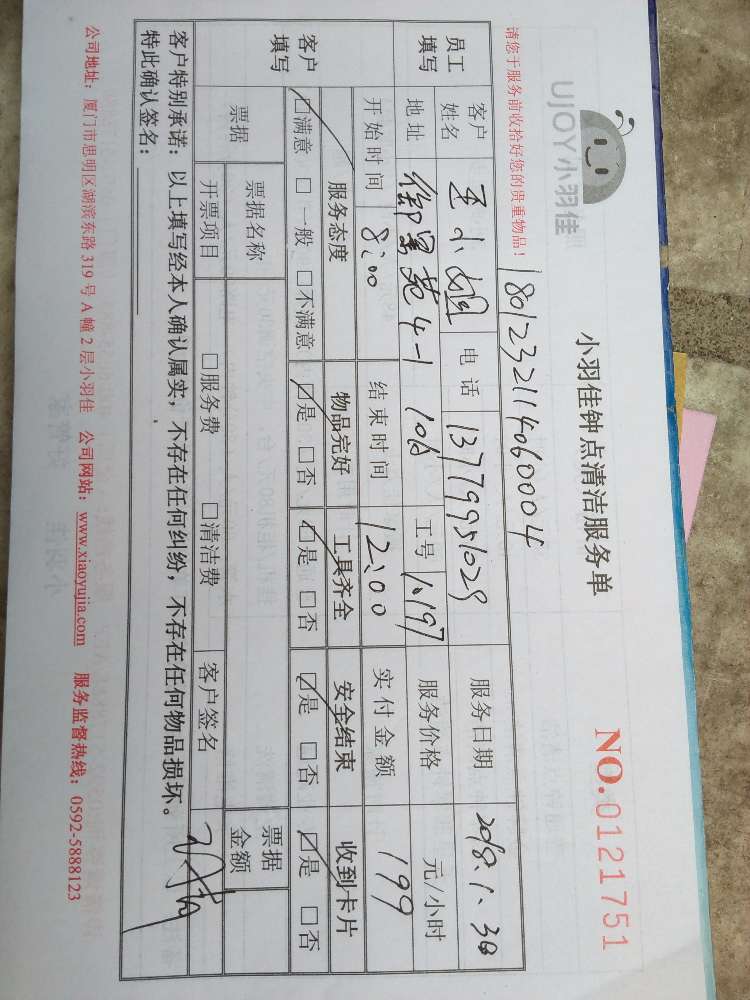 UJOY小羽佳
小羽佳钟点清洁服务单
NO.0121751
请您于服务前收拾好您的贵重物品！
1801232114060004
员工填写
客户姓名 王小姐 电话 13779951029 服务日期 2018.1.30
地址 御景苑4-1 106 工号 1197 服务价格 元/小时
开始时间 8:00 结束时间 12:00 实付金额 199
客户填写
服务态度 物品完好 工具齐全 安全结束 收到卡片
☑满意 □一般 □不满意 ☑是 □否 ☑是 □否 ☑是 □否 ☑是 □否
票据 票据名称 票据金额
开票项目 □服务费 □清洁费 客户签名
客户特别承诺：以上填写经本人确认属实，不存在任何纠纷，不存在任何物品损坏。
特此确认签名：
公司地址：厦门市思明区湖滨东路319号A幢2层小羽佳 公司网站：www.xiaoyujia.com 服务监督热线：0592-5888123